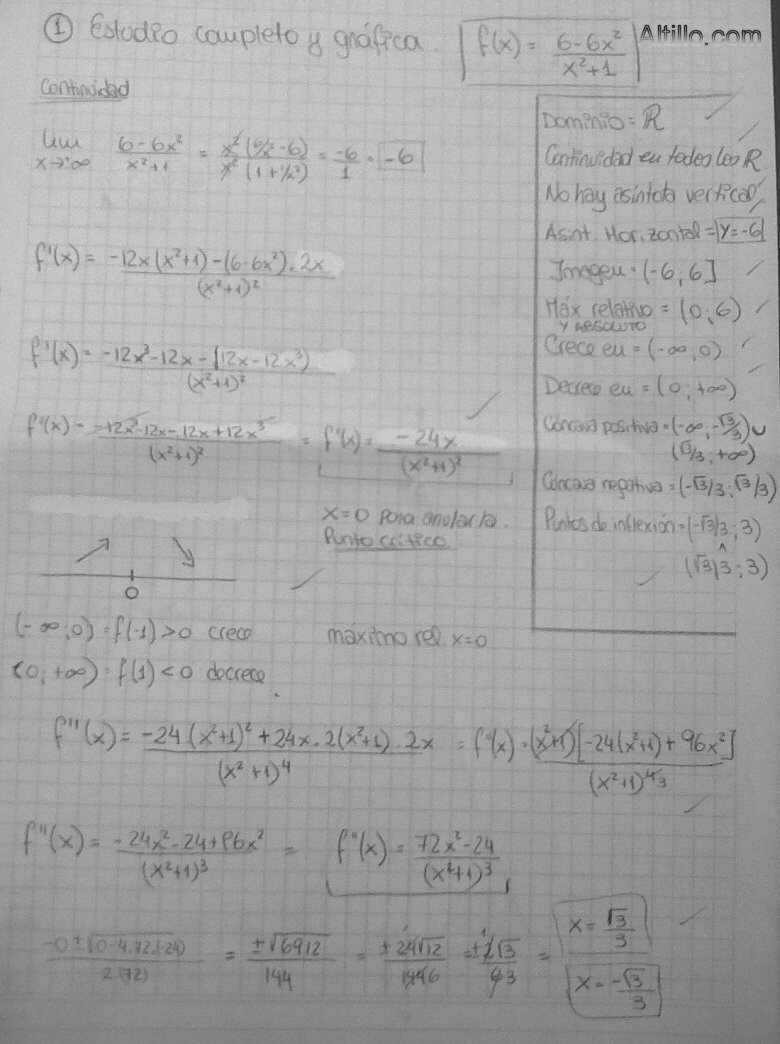 ① Estudio completo y gráfica. f(x) = 6-6x²/x²+1
Altillo.com
Continuidad
lim x→∞ 6-6x²/x²+1 = x²(6/x²-6)/x²(1+1/x²) = -6/1 = -6
f'(x) = -12x(x²+1)-(6-6x²).2x/(x²+1)²
f'(x) = -12x³-12x-(12x-12x³)/(x²+1)²
f'(x) = -12x³-12x-12x+12x³/(x²+1)² = f'(x) = -24x/(x²+1)²
x=0 para anularla.
Punto crítico
0
(-∞;0) = f(-1)>0 crece máximo rel. x=0
(0;+∞) = f(1)<0 decrece.
Dominio = ℝ
Continuidad en todos los ℝ
No hay asíntota vertical
Asínt. Horizontal = y=-6
Imagen = (-6,6]
Máx relativo = (0;6)
Y ABSOLUTO
Crece en = (-∞;0)
Decrece en = (0;+∞)
Cóncava positiva = (-∞;-√3/3)∪
(√3/3;+∞)
Cóncava negativa = (-√3/3;√3/3)
Puntos de inflexión = (-√3/3;3)
∧
(√3/3;3)
f''(x) = -24(x²+1)²+24x.2(x²+1).2x/(x²+1)⁴ = f''(x) = (x²+1)[-24(x²+1)+96x²]/(x²+1)⁴ 3
f''(x) = -24x²-24+96x²/(x²+1)³ = f''(x) = 72x²-24/(x²+1)³
-0±√(0-4.72.(-24))/2(72) = ±√6912/144 = ±24√12/144 6 = ±2√3/6 3 = x = √3/3
x = -√3/3